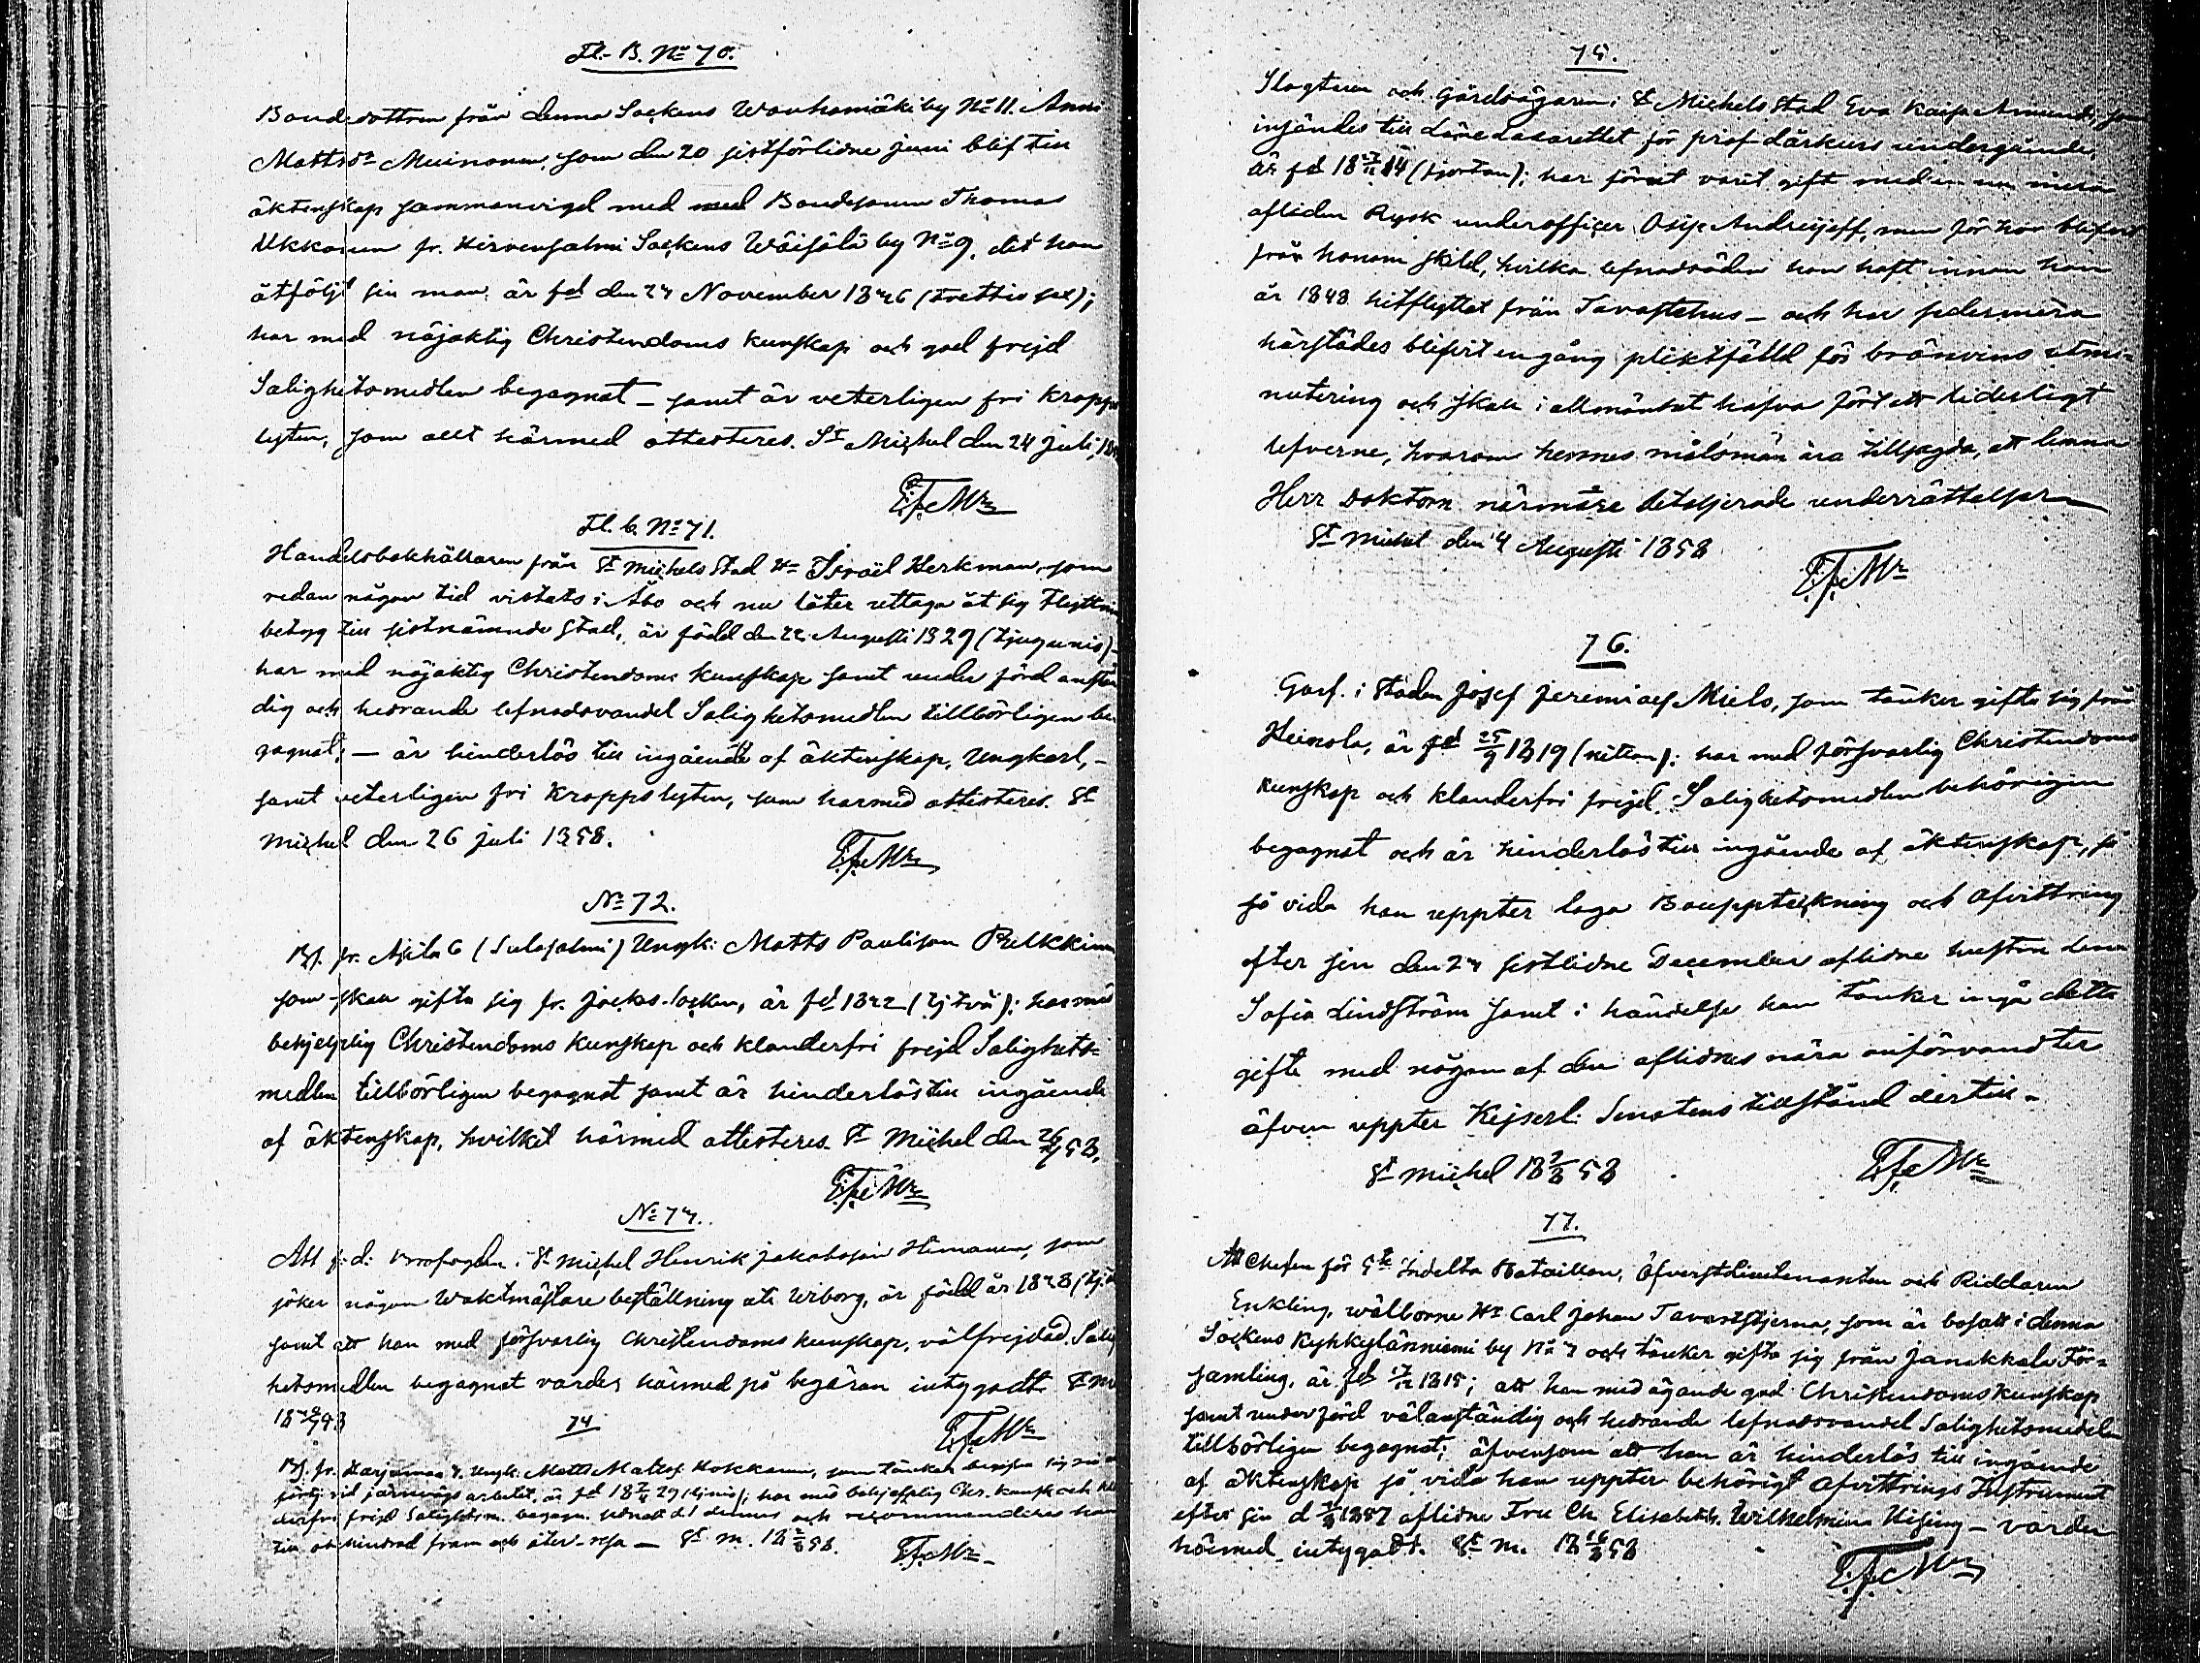 Fl. B. No 70.
Bondedottren från denna Sockens Wanhamäki by No 11. Anna
Mattsdr Muinonen, som den 20 sistförlidne Juni blef till
äktenskap sammanvigd med med Bondesonen Thomas
Ukkonen fr. Hirvensalmi Sockens Wäisälä by No 9, dit hon
åtföljt sin man, är fd den 27 November 1836 (trettio sex);
har med nöjaktig Christendoms kunskap och god frejd
Salighetsmedlen begagnat – samt är veterligen fri kropps
lyten, som allt härmed attesteres. St Michel den 24 Juli,
Fl. b. No 71.
Handelsbokhållaren från St Michels Stad Hr Israël Herkman, som
redan någon tid vistats i Åbo och nu låter uttaga åt sig Flyttnings
betyg till sistnämnde Stad, är född den 22 Augusti 1829 (tjugunio) –
har med nöjaktig Christendoms kunskap samt under förd anstän
dig och hedrande lefnadsvandel Salighetsmedlen tillbörligen be
gagnat; – är hinderlös till ingående af äktenskap, Ungkarl, –
samt veterligen fri kroppslyten, som härmed attesteres. St
Michel den 26 Juli 1858.
No 72.
fr. 6 (Sulasalmi) Ungk: Matts Paulsson Pulkkinen
som skall gifta sig fr. Jockas Socken, är fd 1822 (tj två); har med
behjelplig Christendoms kunskap och klanderfri frejd Salighets-
medlen tillbörligen begagnat samt är hinderlös till ingående
af äktenskap, hvilket härmed attesteres. St Michel den 26/7 58.
No 73.
Att f: d: Kronofogden i St Michel Henrik Jakobsson Himanen, som
söker någon Waktmästare beställning uti Wiborg, är född år 1828
samt att han med försvarlig Christendoms kunskap, välfrejdad Salig
hetsmedlen begagnat varder härmed på begäran intygadt. St M
74
fr. Harjumaa Ungk: Matts Matss. Kokkonen, som tänker begifva sig
vid jernvägs arbetet, är fd 29 har med behjelplig Chr. kunsk och kl
derfri frejd Salighetsm. begagn. och recommenderas han
till obehindrad fram och åter-resa – St M. 18 2/8 58.
75.
och gårdsägaren i St Michels Stad Eva Kaisa som
insändes till Läne Lazarettet för prof- undergående,
är fd 14 (fjorton); har förut varit gift med en nu mera
afliden Rysk underofficer Osip Andrejeff, men för har blifvit
från honom skild, hvilka lefnadsöden hon haft innan hon
år 1848 hitflyttat från Tavastehus – och har sedermera
härstädes blifvit en gång pliktfälld för bränvins utmi-
nutering och skall i allmänhet hafva fört ett liderligt
lefverne, hvarom hennes målsmän äro tillsagda, att lemna
Herr Doktorn närmare detaljerade underrättelser
St Michel den 4 Augusti 1858
76.
i Staden Josef Jeremiaes Miels, som tänker gifta sig från
Heinola, är fd 25/9 1819 (nitton); har med försvarlig Christendoms
kunskap och klanderfri frejd Salighetsmedlen behörigen
begagnat och är hinderlös till ingående af äktenskap, så
så vida han uppter laga Bouppteckning och afvittring
efter sin den 27 sistlidne December aflidne hustru Lena
Sofia Lindström samt i händelse han tänker ingå detta
gifte med någon af den aflidnes nära anförvandter
äfven uppter Kejserl. Senatens tillstånd dertill –
St Michel 18 7/8 58
77.
Att Chefen för 5te Indelta Bataillon, Öfverstlieutenanten och Riddaren
Enkling, wälborne Hr Carl Johan Tavaststjerna, som är bosatt i denna
Sockens Kyhkylänniemi by No 7 och tänker gifta sig från Janakkala För-
samling, är fd 1815; att han med ägande god Christendoms kunskap
samt under förd välanständig och hedrande lefnadsvandel Salighetsmedlen
tillbörligen begagnat; äfvensom att han är hinderlös till ingående
af äktenskap så vida han uppter behörigt Afvittrings Instrument
efter sin d 1857 aflidne Fru Ch. Elisabeth Wilhelmina Hising – varder
härmed intygadt. St M. 18 16/8 58